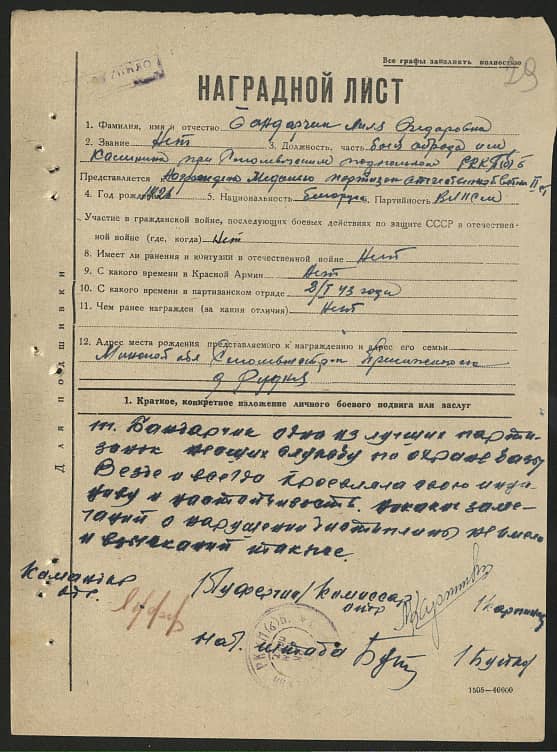 Все графы заполнять полностью
29
НАГРАДНОЙ ЛИСТ
1. Фамилия, имя и отчество Бондарчик Лиля Сидоровна
2. Звание Нет 3. Должность, часть боец отряда им
при подпольном
Представляется к награждению Медалью партизан отечественной войны II ст
4. Год рожд. 5. Национальность белоруска Партийность ВЛКСМ
Участие в гражданской войне, последующих боевых действиях по защите СССР в отечествен-
ной войне (где, когда) Нет
8. Имеет ли ранения и контузии в отечественной войне Нет
9. С какого времени в Красной Армии Нет
10. С какого времени в партизанском отряде 2/I 43 года
11. Чем ранее награжден (за какия отличия) Нет
12. Адрес места рождения представляемого к награждению и адрес его семьи
Минской обл
д Рудня
1. Краткое, конкретное изложение личного боевого подвига или заслуг
т. Бондарчик одна из лучших парти-
занок несющих службу по охране базы
Везде и всегда проявляла свою иници
тиву и настойчивость. никаких заме-
чаний о нарушении дисциплины не имела
и взысканий также.
Командир
отр.
Комиссар
отр
нач. штаба
Для подшивки
1505—40000